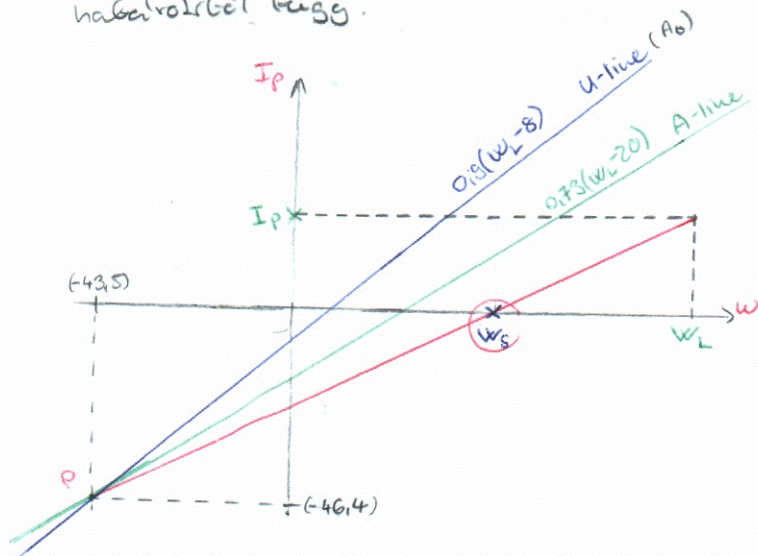 határoktól függ.
I_P
U-line (A₀)
0,9(W_L-8)
A-line
0,73(W_L-20)
I_P
(-43,5)
W
W_S
W_L
P
(-46,4)